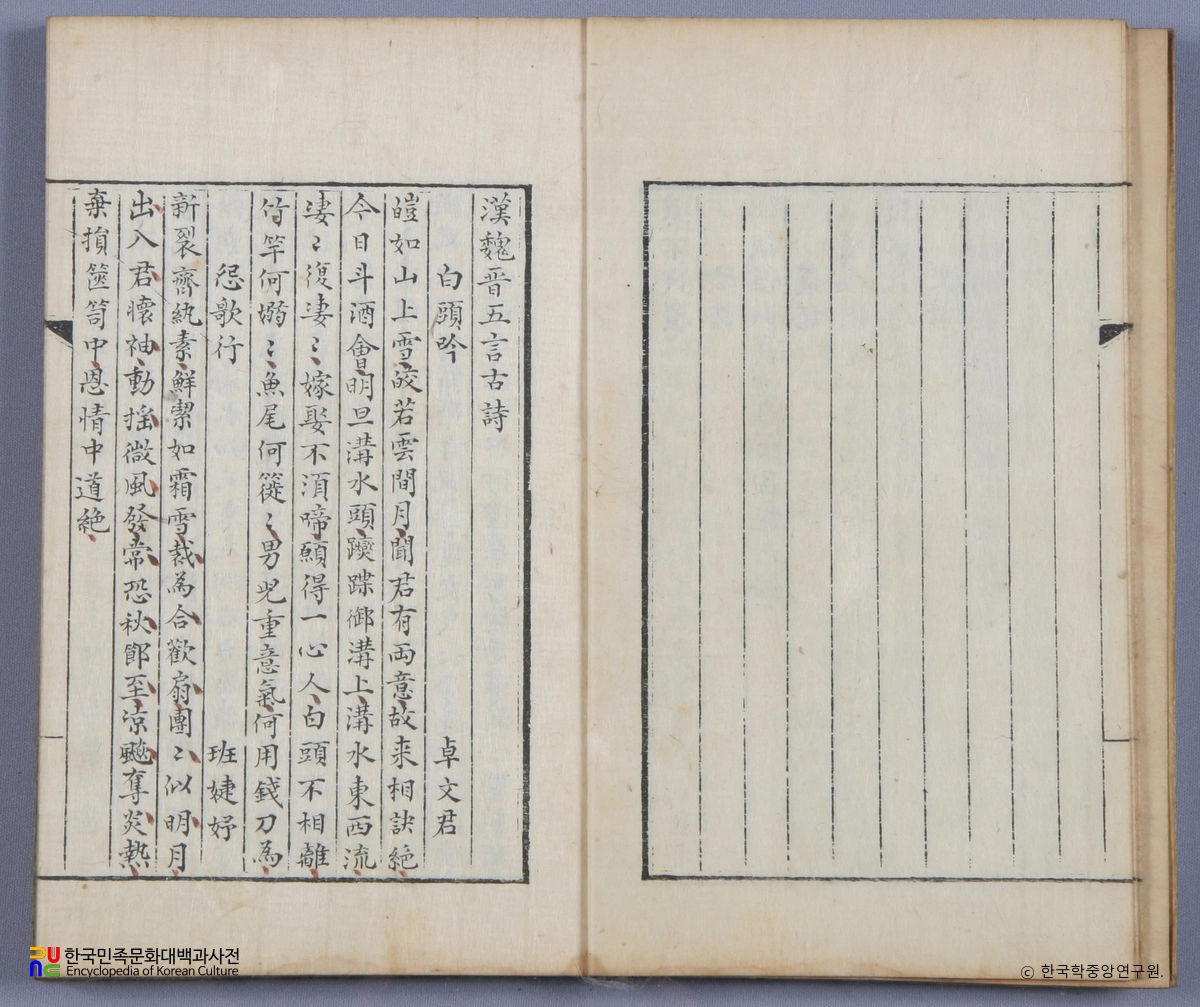 漢魏晋五言古詩
白頭吟 卓文君
皚如山上雪皎若雲間月聞君有兩意故来相訣絶
今日斗酒會明旦溝水頭躞蹀御溝上溝水東西流
凄〻復凄〻嫁娶不湏啼願得一心人白頭不相離
竹竿何嫋〻魚尾何簁〻男児重意氣何用錢刀為
怨歌行 班婕妤
新裂齊紈素鮮潔如霜雪裁為合歡扇團〻似明月
出入君懐袖動揺微風發常恐秋節至凉飈奪炎熱
棄損篋笥中恩情中道絶
한국민족문화대백과사전
Encyclopedia of Korean Culture
ⓒ 한국학중앙연구원.